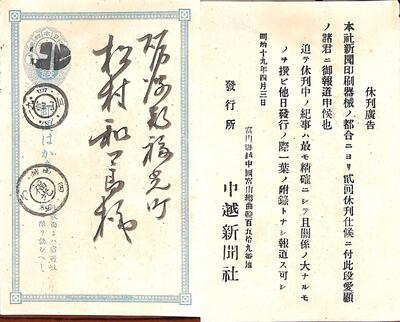 休刊廣告
本社新聞印刷器械ノ都合ニヨリ貳回休刊仕候ニ付此段愛顧
ノ諸君ニ御報道申候也
迫テ休刊中ノ紀事ハ最モ精確ニシテ且關係ノ大ナルモ
ノヲ撰ビ他日發行ノ際一葉ノ附録トナシ報道ス可シ
明治十九年四月三日
富山縣越中國富山總曲輪百九拾九番地
發行所 中越新聞社
砺波郡福光町
松村和一郎様
はかき